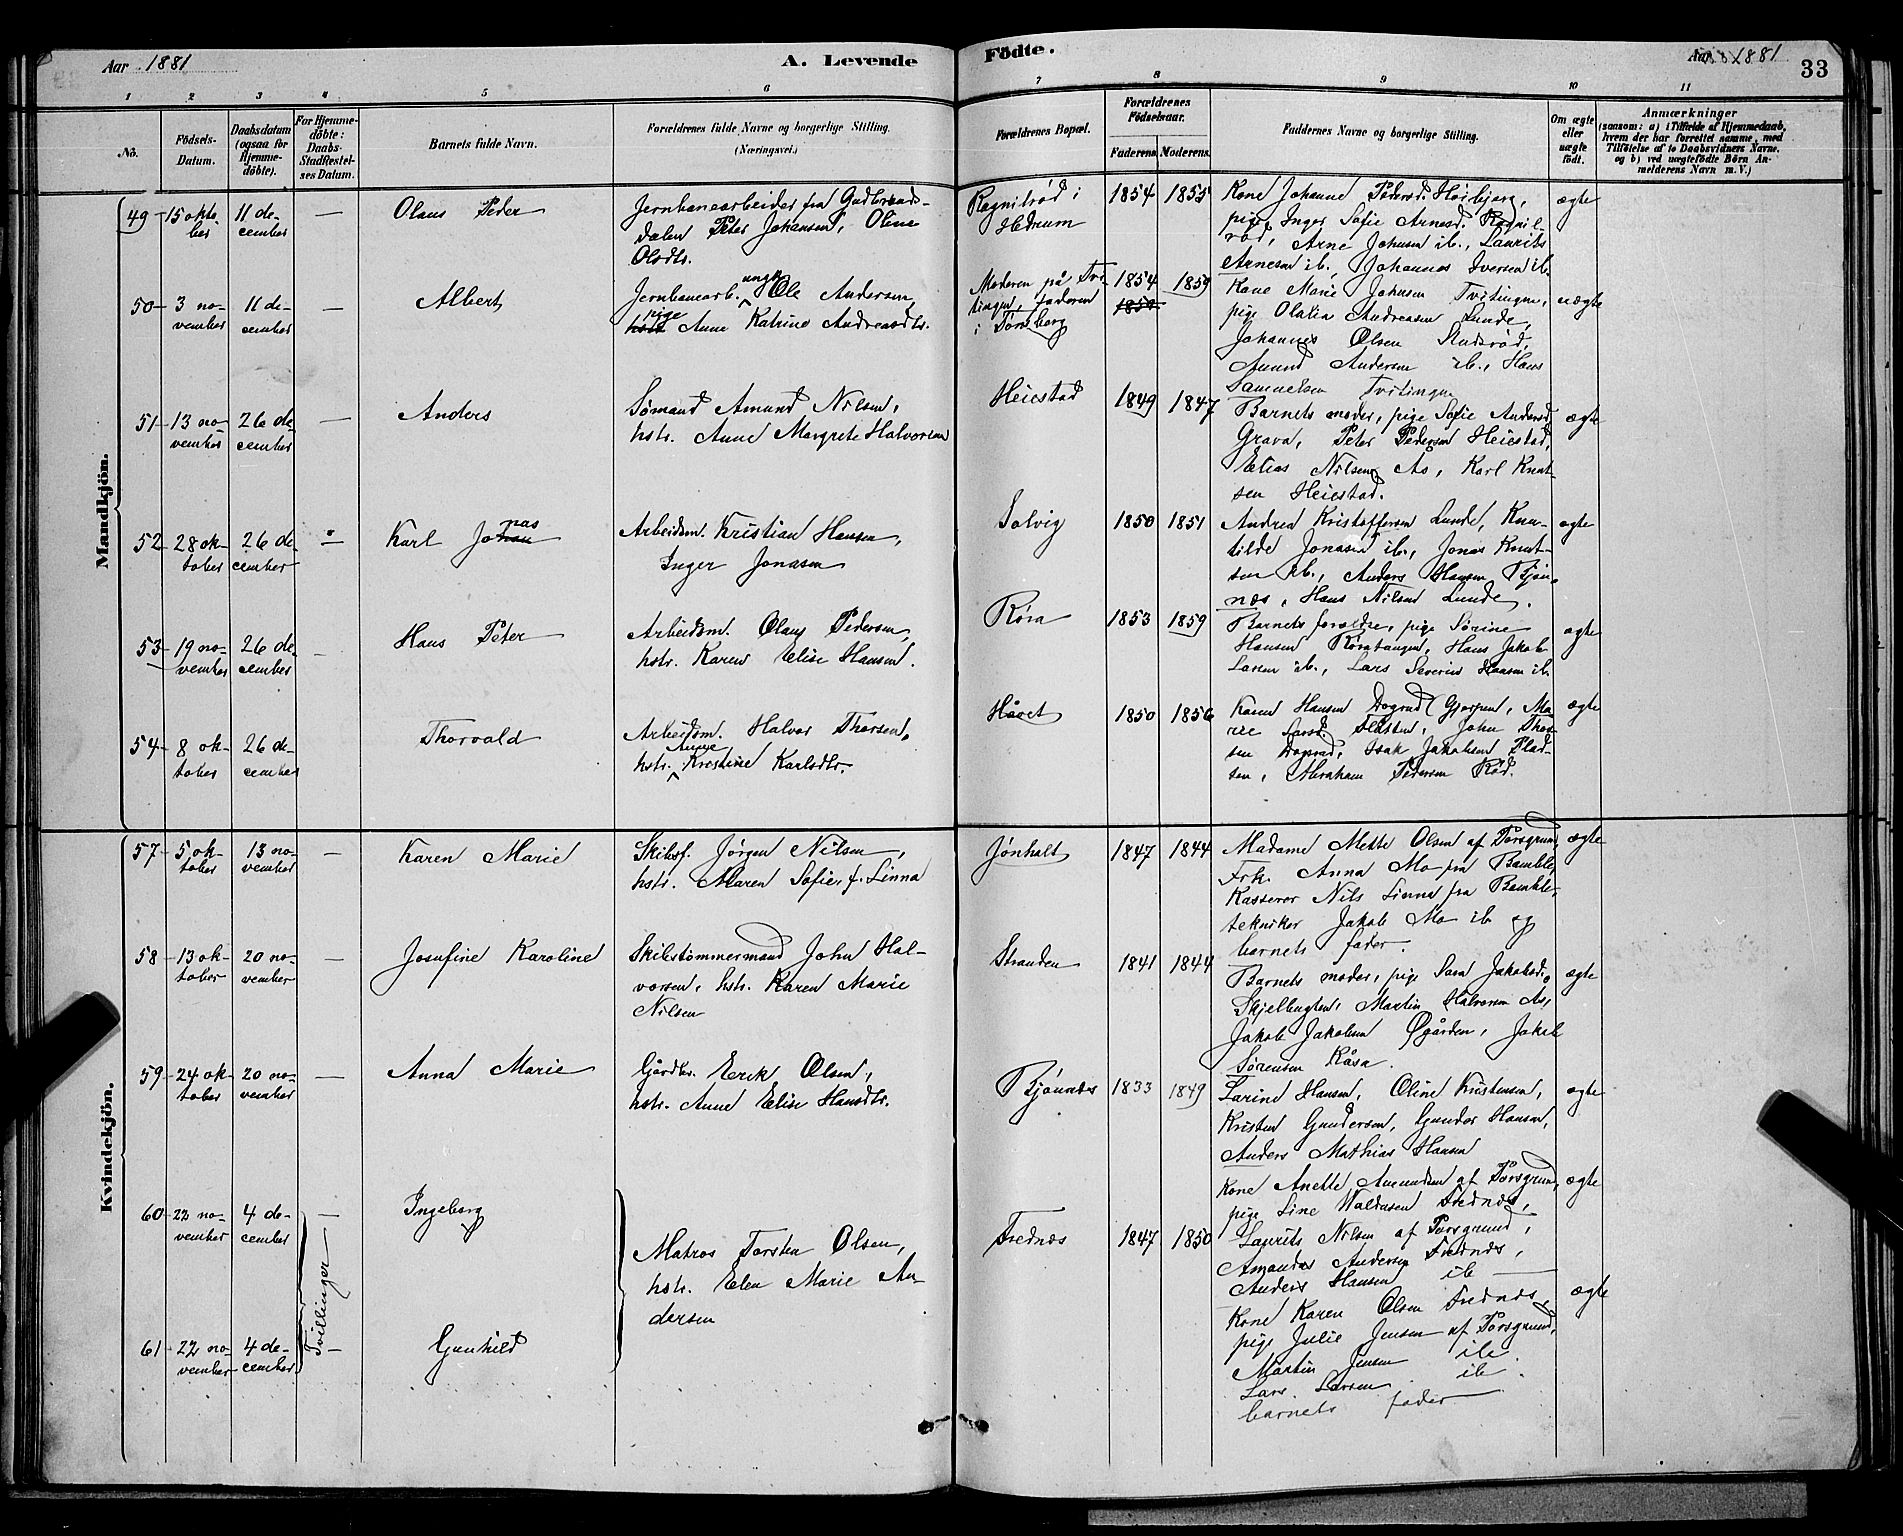 Aar 1881
A. Levende
Födte.
Aar 1881
33
1 2 3 4 5 6 7 8 9 10 11
No.
Födsels-
Datum.
Daabsdatum
(ogsaa for
Hjemme-
döbte).
For Hjemme-
döbte:
Daabs-
Stadfæstel-
ses Datum.
Barnets fulde Navn.
Forældrenes fulde Navne og borgerlige Stilling.
(Næringsvei.)
Forældrenes Bopæl.
Forældrenes
Födselsaar.
Faderens. Moderens.
Faddernes Navne og borgerlige Stilling.
Om ægte
eller
uægte
födt.
Anmærkninger
(saasom: a) i Tilfælde af Hjemmedaab,
hvem der har forrettet samme, med
Tilföielse af to Daabsvidners Navne,
og b) ved uægtefödte Börn An-
melderens Navn m.V.)
Mandkjön.
49 15 okto-
ber
11 de-
cember
—
Olaus Peder
Jernbanearbeider fra Gudbrands-
dalen Peter Johansen, Oline
Olsdtr.
Ragnilrød i
Hedrum
1854 1855
Kone Johanne Pedersd. Høibjerg,
pige Inger Sofie Arnesd. Ragnil-
rød, Arne Johnsen ib., Laurits
Arnesen ib., Johannes Iversen ib.
ægte
50 3 no-
vember
11 de-
cember
Albert
Jernbanearb. ungk. Ole Andersen,
pige Anne Katrine Andreasdtr.
Moderen på Tvi-
tingen, faderen
i Tønsberg
1854 1859
1858
Kone Marie Johnsen Tvitingen,
pige Olalia Andreasen Lunde,
Johannes Olsen Stadsrød,
Amund Andersen ib., Hans
Samuelsen Tvitingen
uægte
51 13 no-
vember
26 de-
cember
—
Anders
Sømand Amund Nilsen,
hstr. Anne Margrete Halvorsen
Heiestad
1849 1847
Barnets moder, pige Sofie Andersd.
Grava, Peter Pedersen Heiestad,
Elias Nilsen Ås, Karl Knut-
sen Heiestad.
ægte
52 28 ok-
tober
26 de-
cember
—
Karl Jonas
Arbeidsm. Kristian Hansen,
Inger Jonasen
Solvig
1850 1851
Andrea Kristoffersen Lunde, Knu-
tilde Jonasen ib., Jonas Knut-
sen ib., Anders Hansen Bjøn-
næs, Hans Nilsen Lunde.
ægte
53 19 no-
vember
26 de-
cember
—
Hans Peter
Arbeidsm. Olaus Pedersen,
hstr. Karen Elise Hansen.
Røra
1853 1859
Barnets forældre, pige Sørine
Hansen Røratangen, Hans Jakob
Larsen ib., Lars Severin Hansen ib.
ægte
54 8 ok-
tober
26 de-
cember
Thorvald
Arbeidsm. Halvor Thorsen,
hstr. Anne Kristine Karlsdtr.
Håvet
1850 1856
Karen Hansen Gjerpen, Ma-
rie Larsd. Flåtten, John Thor-
sen Isak Jakobsen Plad-
sen, Abraham Pedersen Rød.
ægte
Kvindekjön.
57 5 ok-
tober
13 no-
vember
—
Karen Marie
Skibsf. Jørgen Nilsen,
hstr. Maren Sofie, f. Linna
Jønholt
1847 1844
Madame Mette Olsen af Porsgrund,
Frk. Anna Mo fra Bamble,
Kasserer Nils Linna fra Bamble,
tekniker Jakob Mo ib og
barnets fader.
ægte
58 13 ok-
tober
20 no-
vember
—
Josefine Karoline
Skibstømmermand John Hal-
vorsen, hstr. Karen Marie
Nilsen
Stranden
1841 1844
Barnets moder, pige Sara Jakobsd.
Skjelbugten, Martin Halvorsen Ås,
Jakob Jakobsen Øgården, Jakob
Sørensen Kåsa.
ægte
59 24 ok-
tober
20 no-
vember
—
Anna Marie
Gårdbr. Erik Olsen,
hstr. Anne Elise Hansdtr.
Bjønnæs
1833 1849
Larine Hansen, Oline Kristensen,
Kristen Gundersen, Gunder Hansen,
Anders Mathias Hansen
ægte
60 22 no-
vember
4 de-
cember
—
Tvillinger
Ingeborg
Matros Torsten Olsen,
hstr. Elen Marie An-
dersen
Frednæs
1847 1850
Kone Anette Amundsen af Porsgrund,
pige Line Waldesen Frednæs,
Laurits Nilsen af Porsgrund,
Amandus Andersen Frednæs,
Anders Hansen ib
ægte
61 22 no-
vember
4 de-
cember
—
Gunhild
Kone Karen Olsen Frednæs,
pige Julie Jensen af Porsgrund,
Martin Jensen ib.
Lars Larsen ib.
barnets fader
ægte